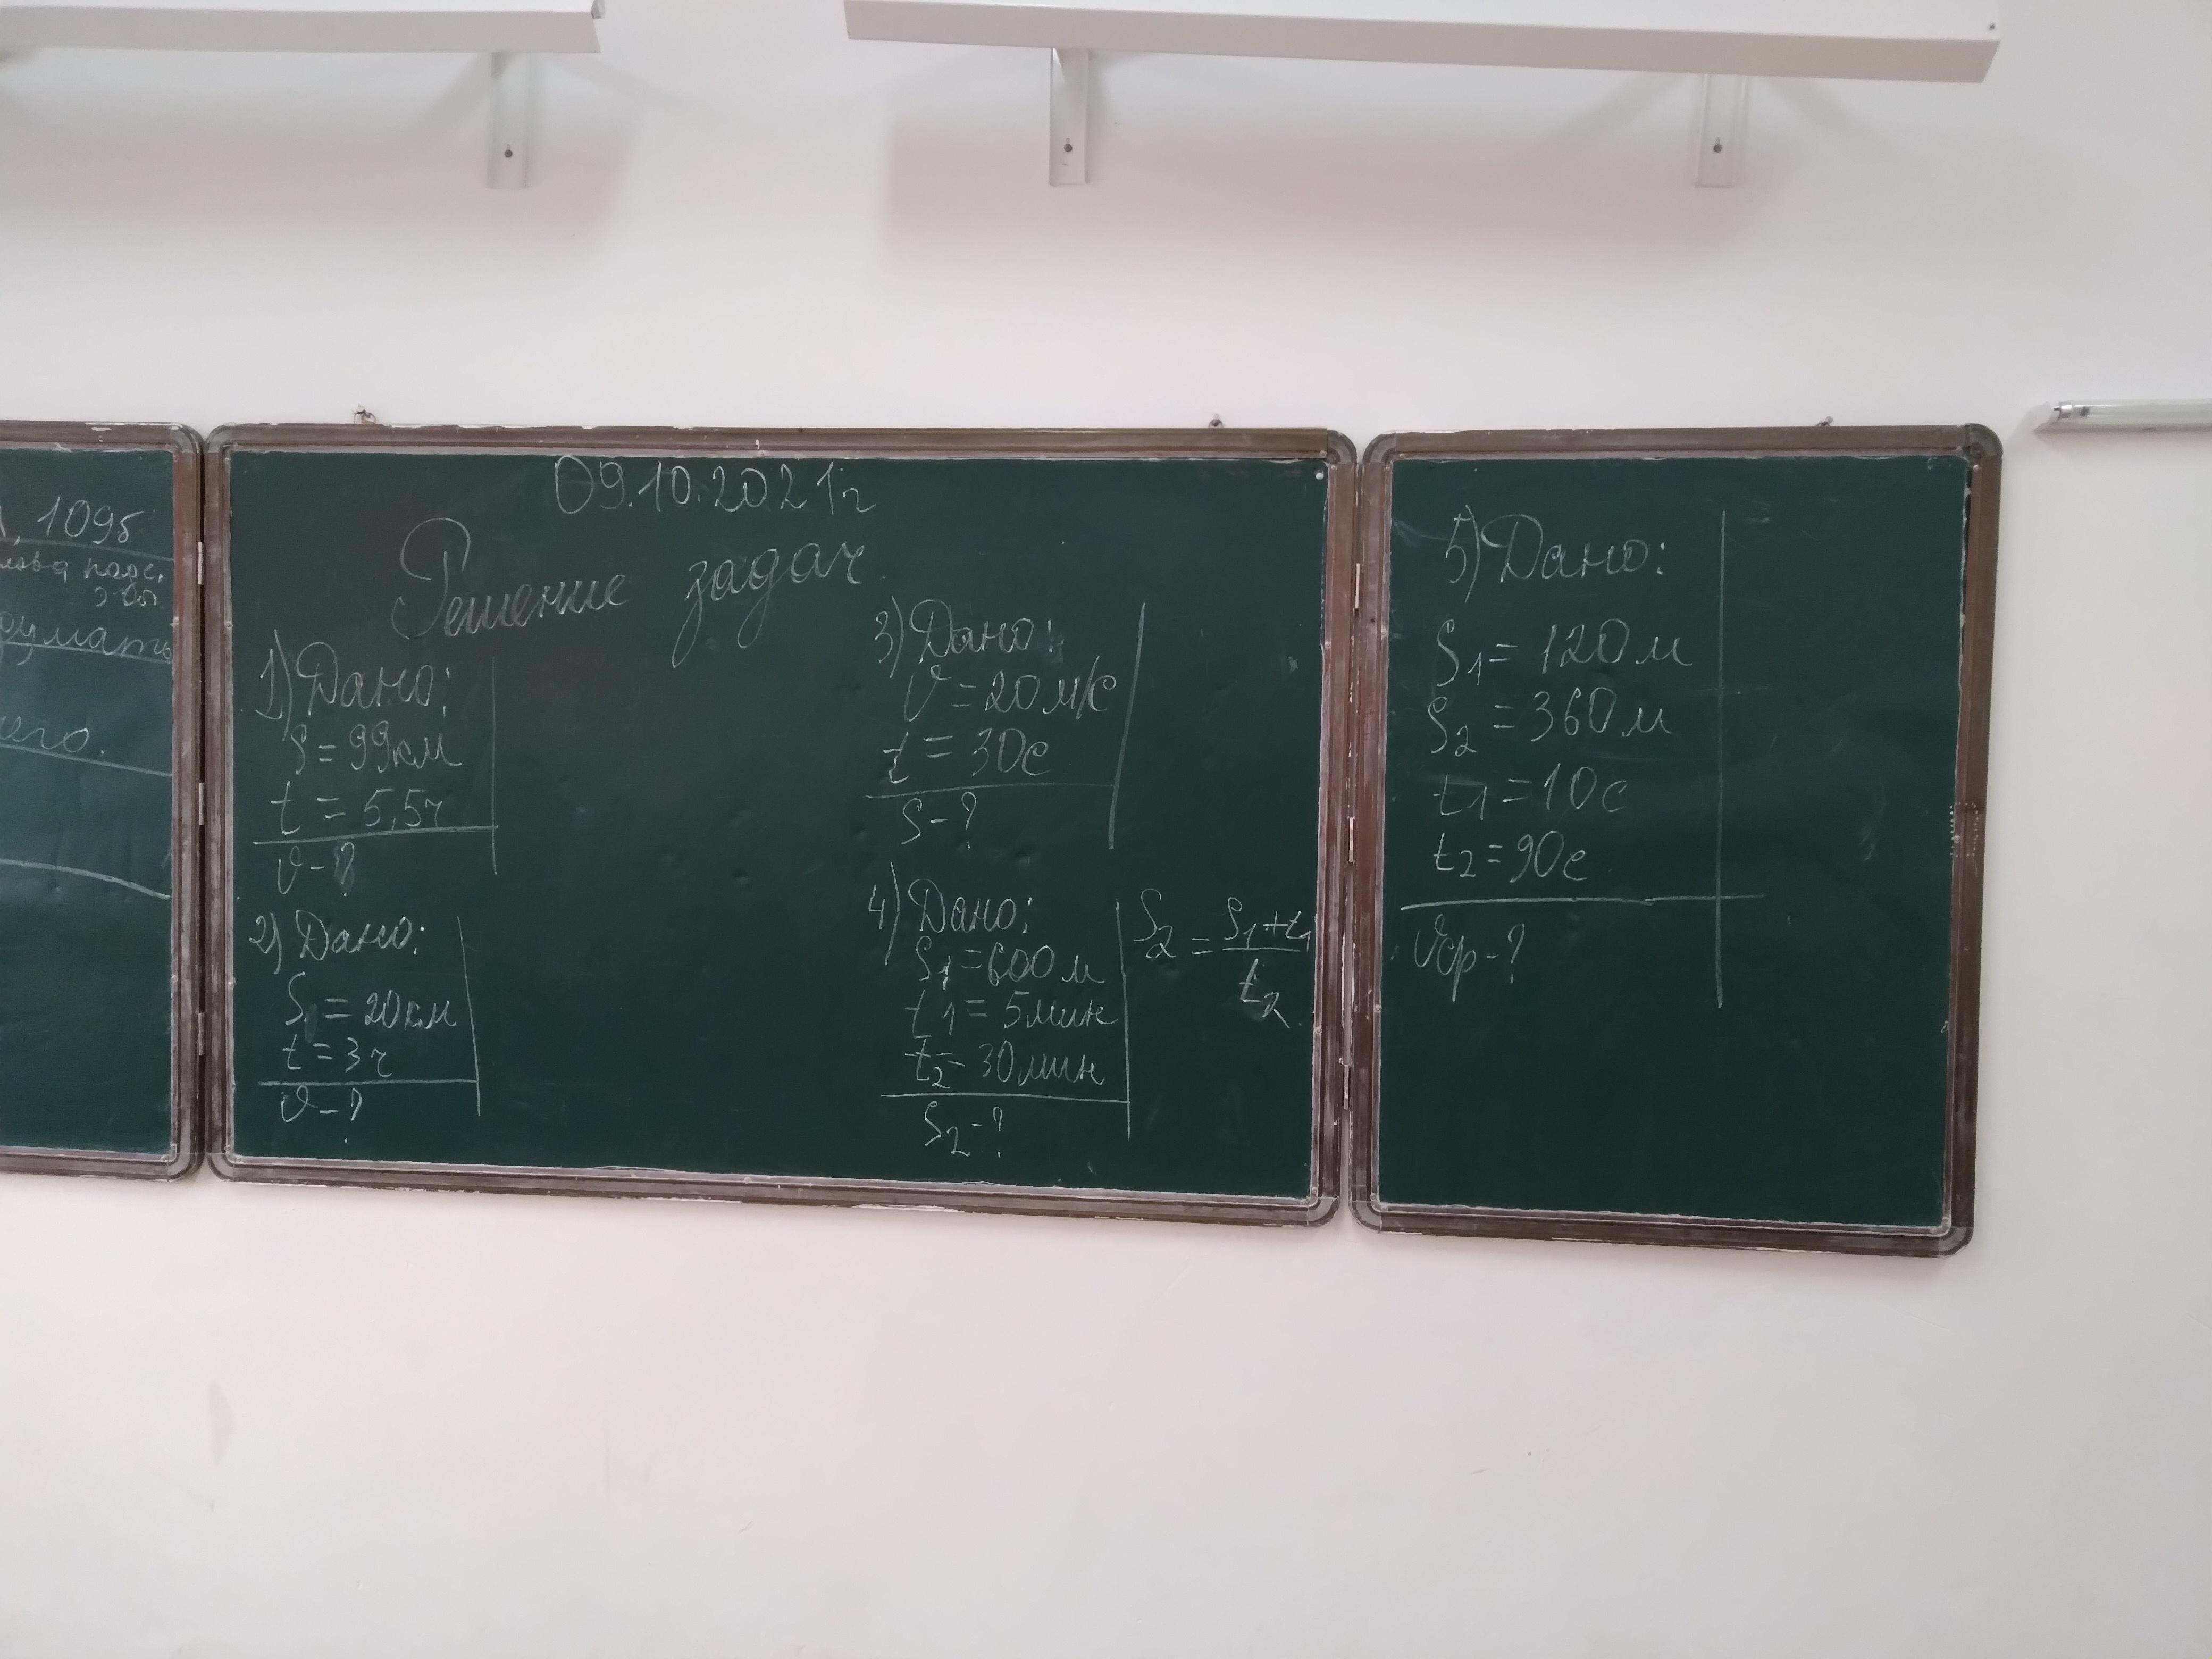 1095
09.10.2021г
Решение задач
1) Дано:
S = 99км
t = 5,5ч
v - ?
2) Дано:
S1 = 20км
t = 3ч
v - ?
3) Дано:
v = 20м/с
t = 30с
S - ?
4) Дано:
S1 = 600м
t1 = 5мин
t2 = 30мин
S2 - ?
S2 = S1 + t1
t2
5) Дано:
S1 = 120м
S2 = 360м
t1 = 10с
t2 = 90с
vср - ?